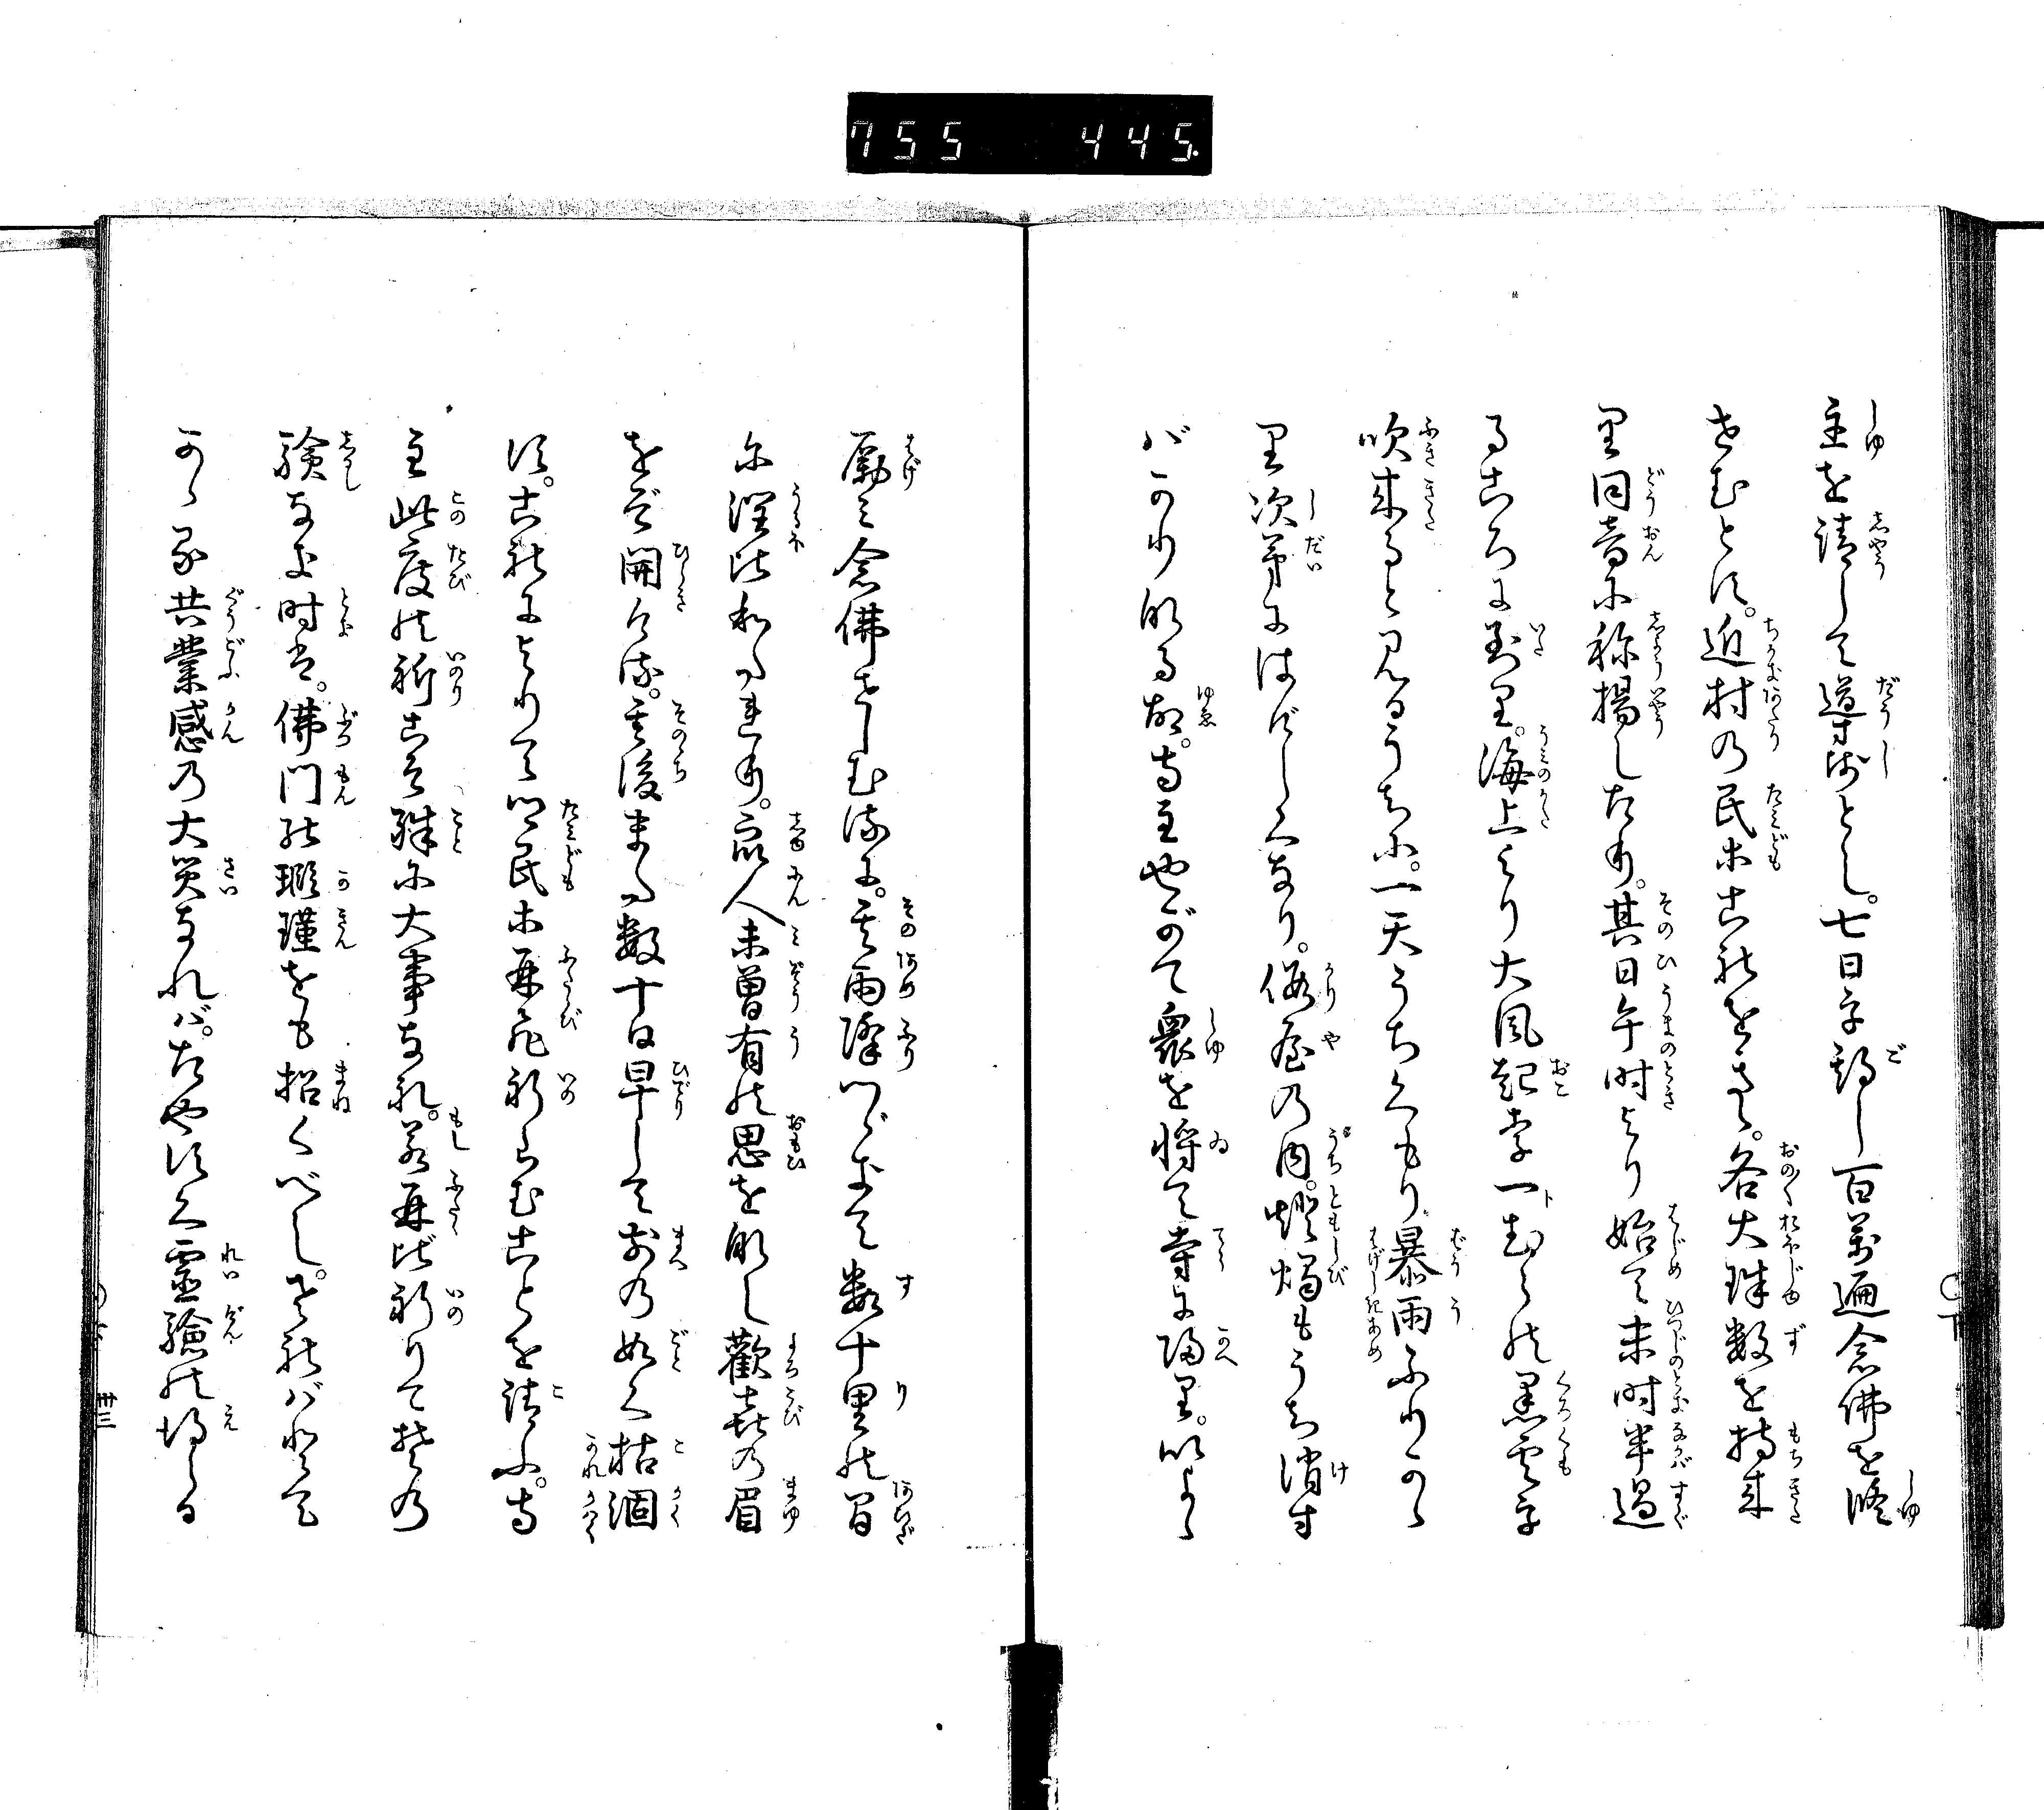 755 445
主を請して導師とし。七日を期し百萬遍念佛を修
せむとす。近村の民等これをきゝ。各大珠数を持来
り同音に称揚したり。其日午時より始て未時半過
るころに到り。海上より大風起て一むらの黒雲を
吹来ると見るうちに。一天うちくもり暴雨ふりかゝ
り次第にはげしくなり。仮屋の内。燈燭もうち消す
ばかりなる故。寺主やがて衆を将て寺に帰り。いよゝ
励み念佛せしむるに。其雨降つゞきて数十里の間
に潤ひわたれり。衆人未曽有の思を為し歓喜の眉
をぞ開ける。其後また数十日旱して前の如く枯涸
す。これによりて民等再び祈らむことを請ふ。寺
主此度の祈こそ殊に大事なれ。若再び祈りて其の
験なき時は。佛門の瑕瑾をも招くべし。されば迚も
かゝる共業感の大災なれば。たやすく霊験の得らる
卅三